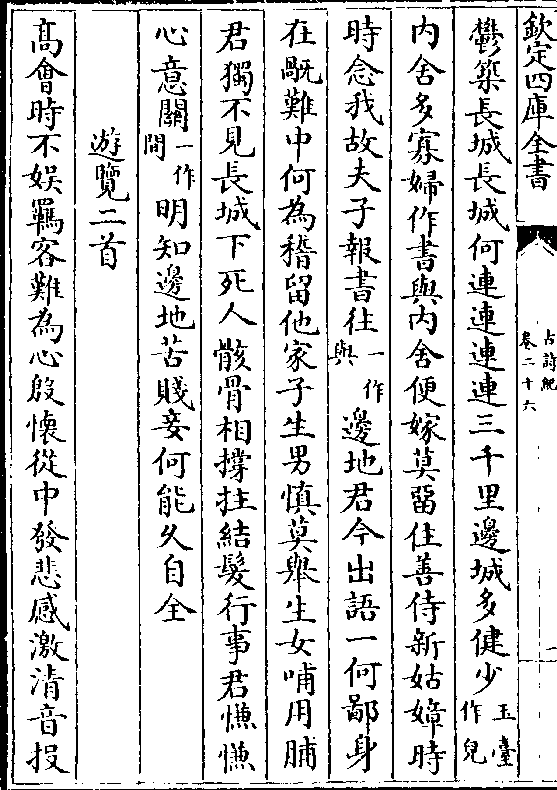 欽定四庫全書
古詩紀
卷二十六
鬱築長城長城何連連連連三千里邊城多健少玉臺作兒
內舍多寡婦作書與內舍便嫁莫留住善侍新姑嫜時
時念我故夫子報書往一作與邊地君今出語一何鄙身
在畩難中何為稽留他家子生男慎莫舉生女哺用脯
君獨不見長城下死人骸骨相撐拄結髮行事君慊慊
心意關一作間明知邊地苦賤妾何能久自全
遊覽二首
高會時不娱羈客難為心殷懷從中發悲感激清音投